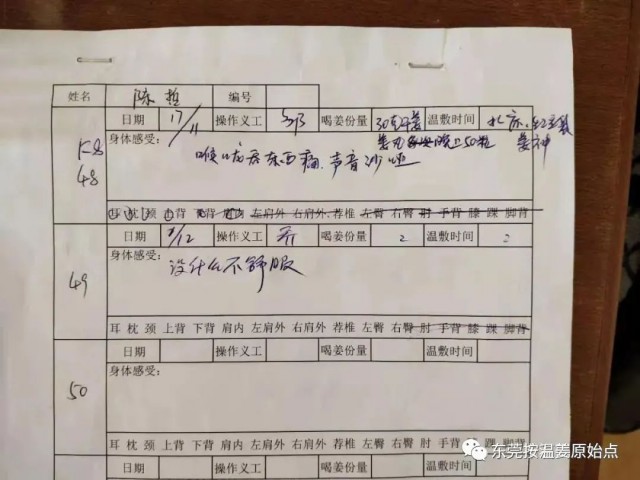 姓名 陈哲 编号
日期 17/11 操作义工 喝姜份量 30克干姜 温敷时间
姜丸 晚上50粒 姜神
48 身体感受:
喉咙居东西痛,声音沙哑
耳 枕 颈 上背 下背 肩内 左肩外 右肩外 荐椎 左臀 右臀 肘 手背 膝 踝 脚背
日期 1/12 操作义工 乔 喝姜份量 2 温敷时间 2
49 身体感受:
没什么不舒服
耳 枕 颈 上背 下背 肩内 左肩外 右肩外 荐椎 左臀 右臀 肘 手背 膝 踝 脚背
日期 操作义工 喝姜份量 温敷时间
50 身体感受:
耳 枕 颈 上背 下背 肩内 左肩外 右肩外 荐椎 左臀 右臀 肘 手背 膝 踝 脚背
日期 操作义工 喝姜份量 温敷时间
东莞按温姜原始点